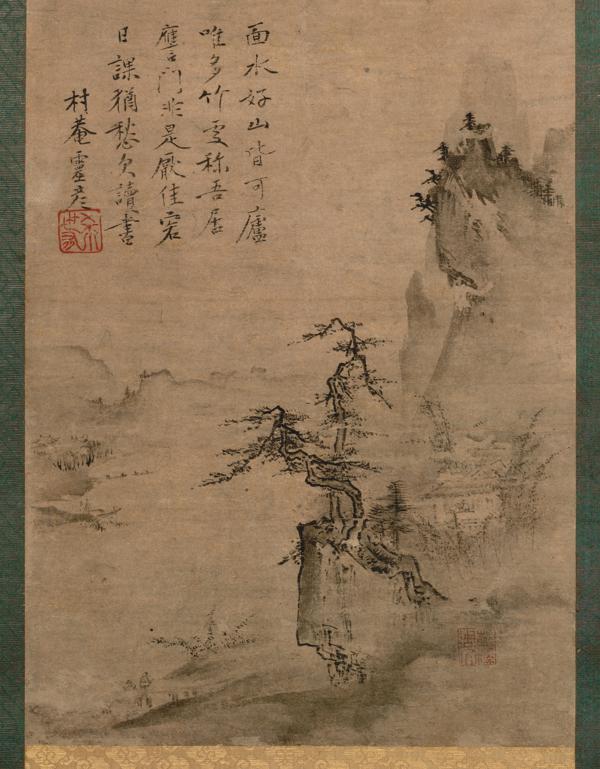 面水好山皆可廬
唯多竹雯稱吾居
應門非是厭佳客
日課猶愁欠讀書
村菴靈彦